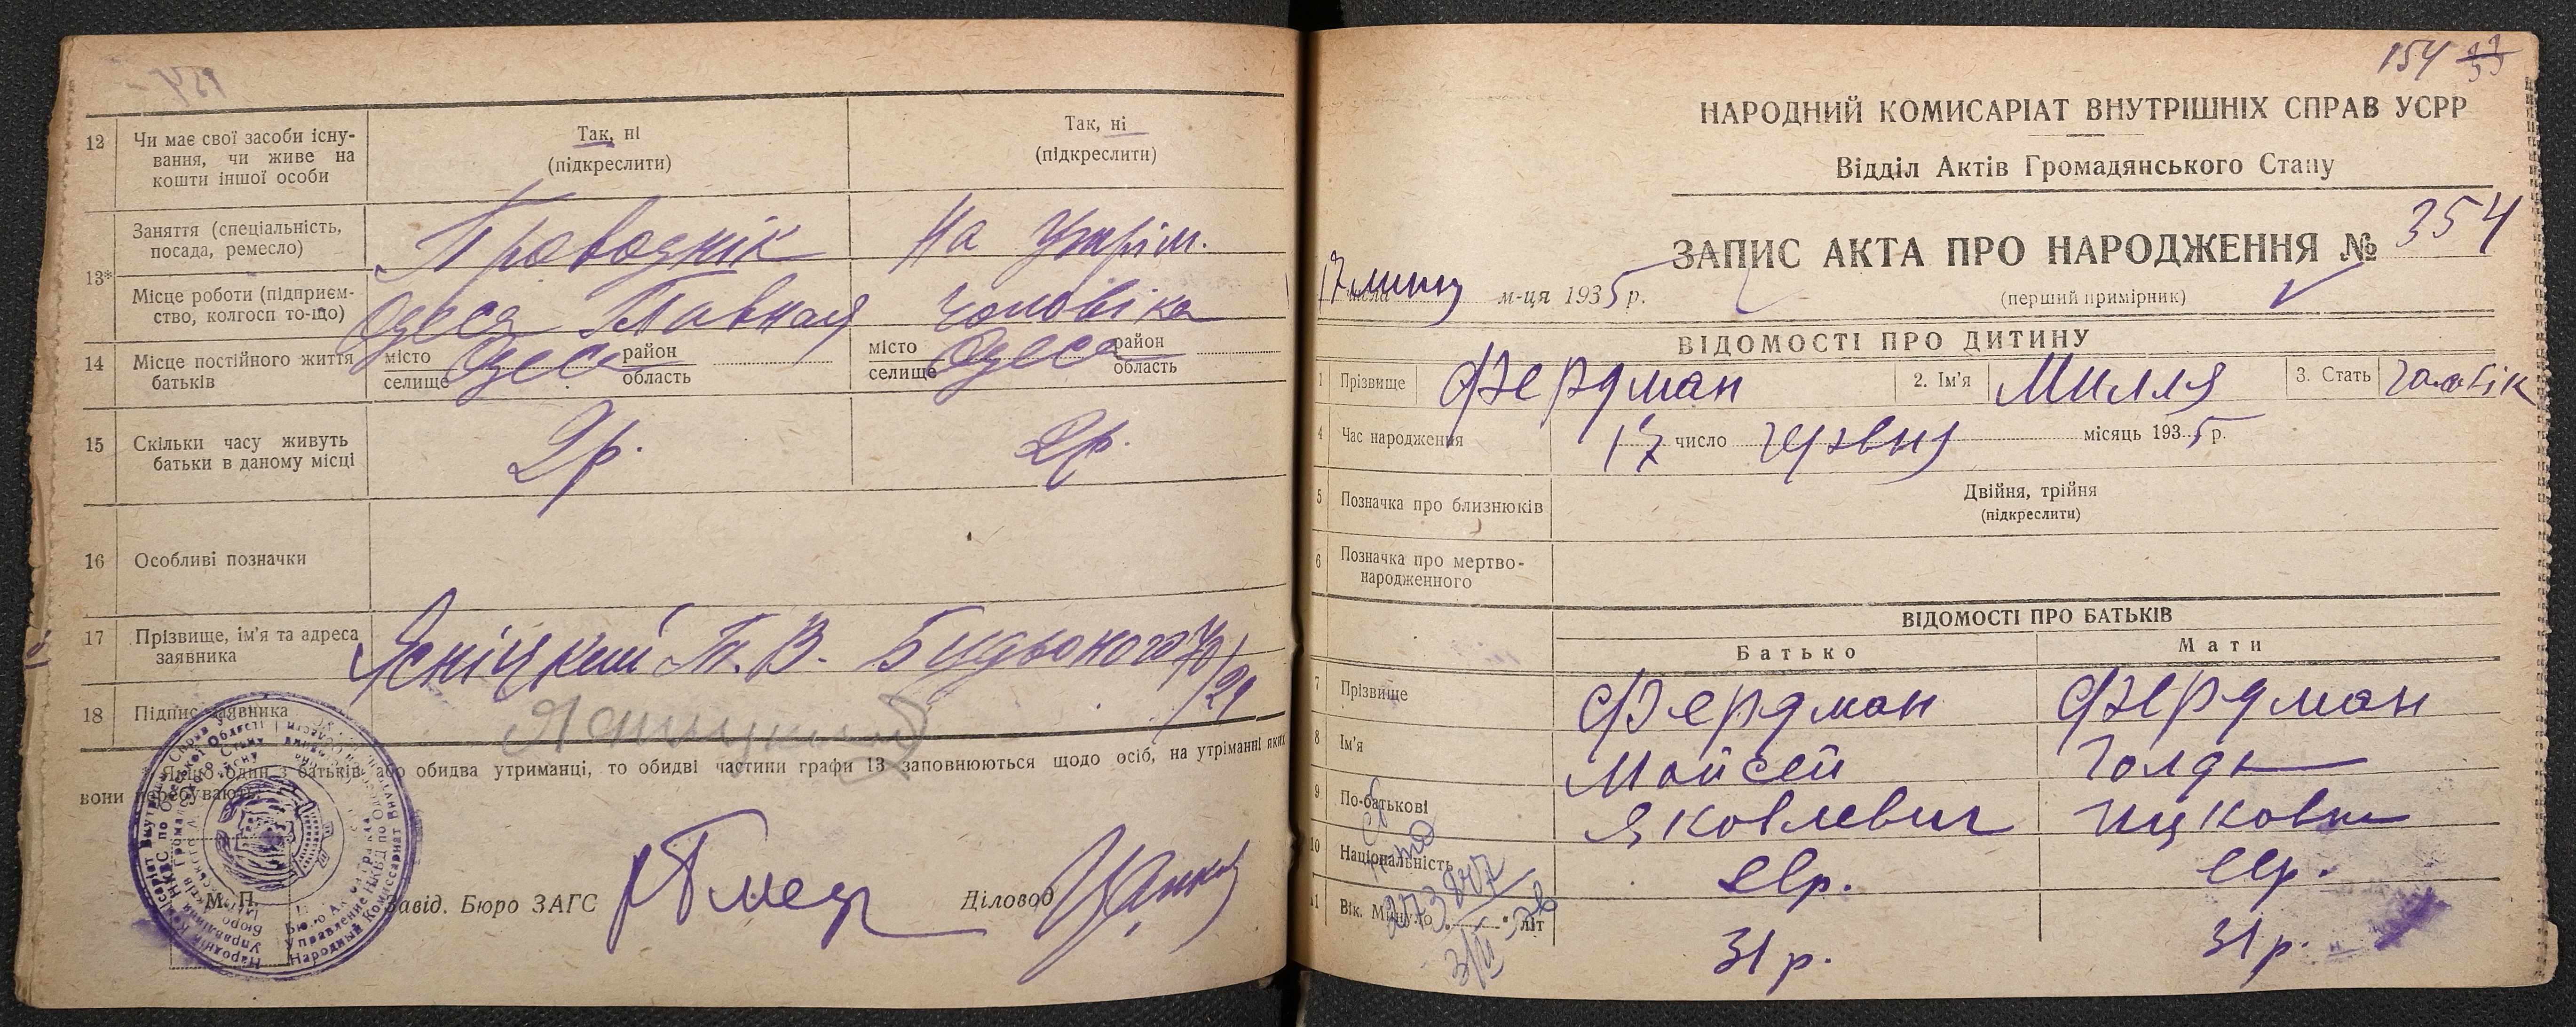 12 Чи має свої засоби існу-
вання, чи живе на
кошти іншої особи
Так, ні
(підкреслити)
Так, ні
(підкреслити)
13*
Заняття (спеціальність,
посада, ремесло)
Проводнік
На утрім.
Місце роботи (підприєм-
ство, колгосп то-що)
Одеса Главная
чоловіка
14 Місце постійного життя
батьків
місто
селище
Одеса
район
область
місто
селище
Одеса
район
область
15 Скільки часу живуть
батьки в даному місці
2р.
2р.
16 Особливі позначки
17 Прізвище, ім'я та адреса
заявника
Ясніцкий Т. В. Будьоного 70/21
18 Підпис заявника
* Якщо один з батьків або обидва утриманці, то обидві частини графи 13 заповнюються щодо осіб, на утриманні яких
вони перебувають.
М. П.
Завід. Бюро ЗАГС
Діловод
154 33
НАРОДНИЙ КОМИСАРІАТ ВНУТРІШНІХ СПРАВ УСРР
Відділ Актів Громадянського Стану
ЗАПИС АКТА ПРО НАРОДЖЕННЯ № 354
17 липня
числа м-ця 1935 р.
(перший примірник)
ВІДОМОСТІ ПРО ДИТИНУ
1 Прізвище Фердман 2. Ім'я Милля 3. Стать чоловік
4 Час народження 17 число червня місяць 1935 р.
5 Позначка про близнюків
Двійня, трійня
(підкреслити)
6 Позначка про мертво-
народженного
ВІДОМОСТІ ПРО БАТЬКІВ
Батько Мати
7 Прізвище Фердман Фердман
8 Ім'я Мойсей Голда
9 По-батькові Яковлевич Ицковна
10 Національність евр. евр.
11 Вік. Минуло літ 31 р. 31 р.